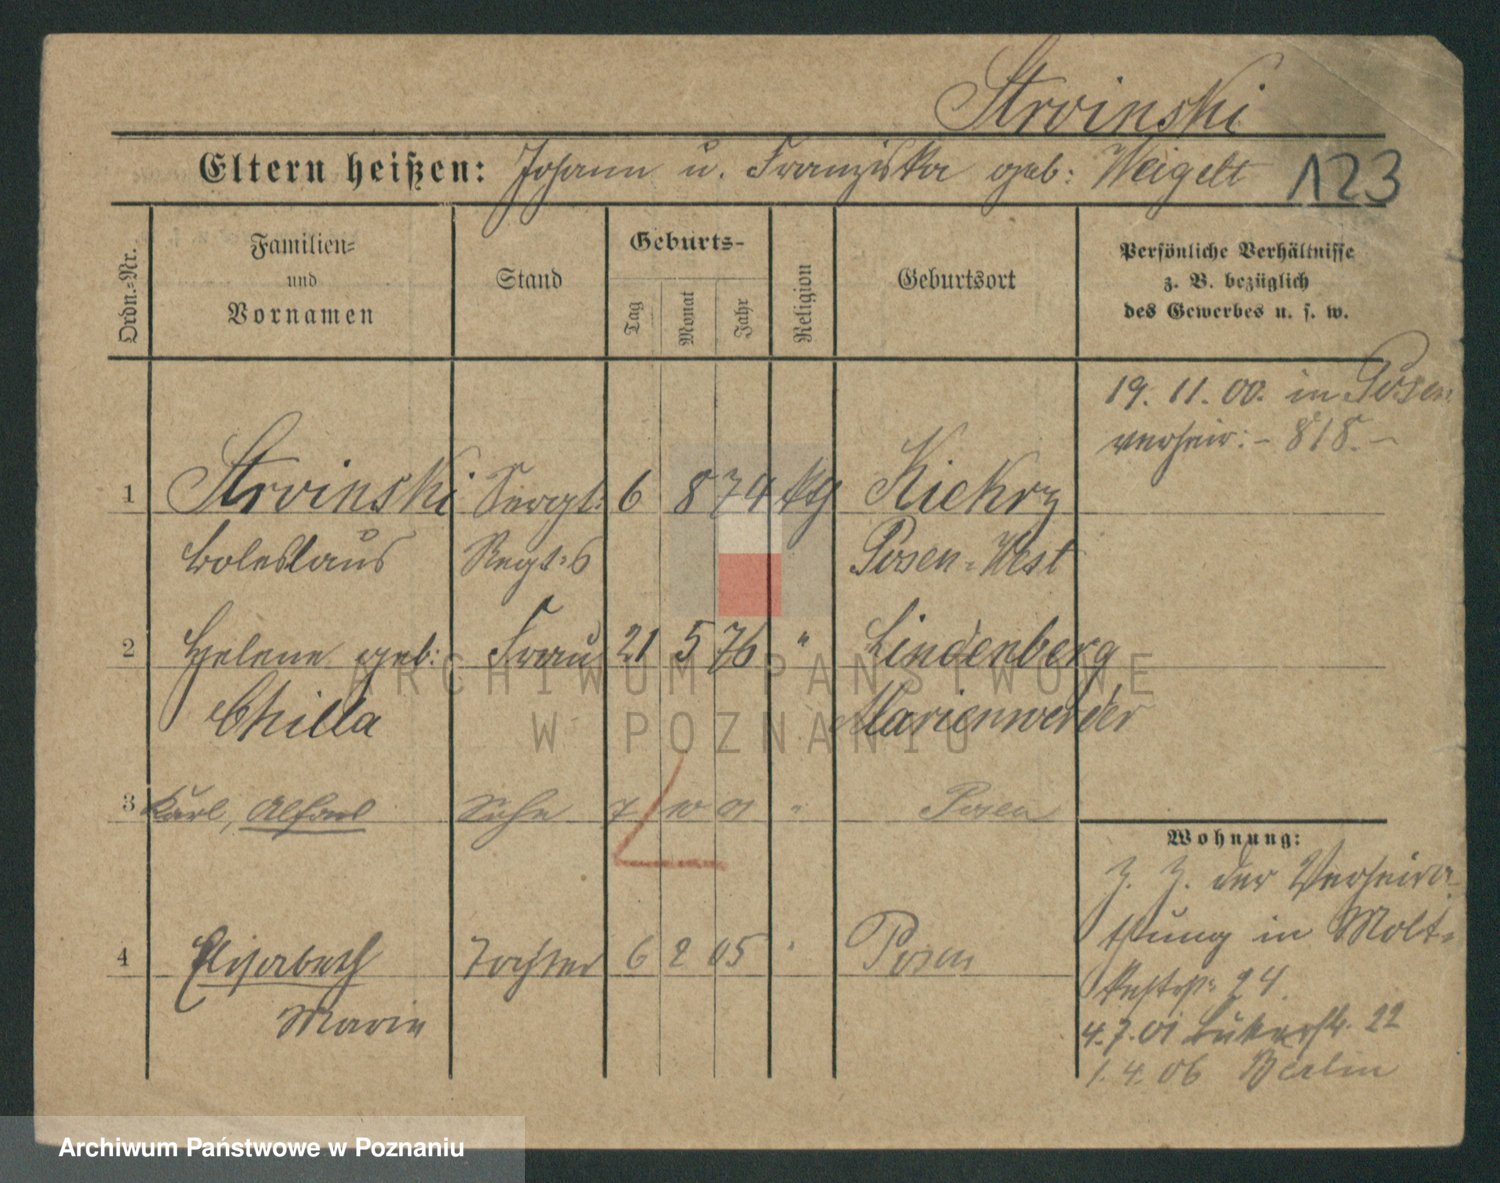 Stroinski
Eltern heißen: Johann u. Franziska geb: Weigelt 123
Ordn.-Nr.
Familien-
und
Vornamen
Stand
Geburts-
Tag
Monat
Jahr
Religion
Geburtsort
Persönliche Verhältnisse
z. B. bezüglich
des Gewerbes u. s. w.
19. 11. 00. in Posen
verheir: - 818. -
1 Stroinski Sergt: 6 8 74 ktg Kiekrz
Boleslaus Regt: 6 Posen-West
2 Helene geb: Frau 21 5 76 " Lindenberg
Chilla Marienwerder
3 Karl, Alfons Sohn 7 10 01 " Posen
Wohnung:
Z. Z. der Verheira-
thung in Molt-
kestr: 24.
4 Elisabeth Tochter 6 2 05 " Posen
Marie
4. 7. 01 22
1. 4. 06 Berlin
ARCHIWUM PAŃSTWOWE
W POZNANIU
Archiwum Państwowe w Poznaniu